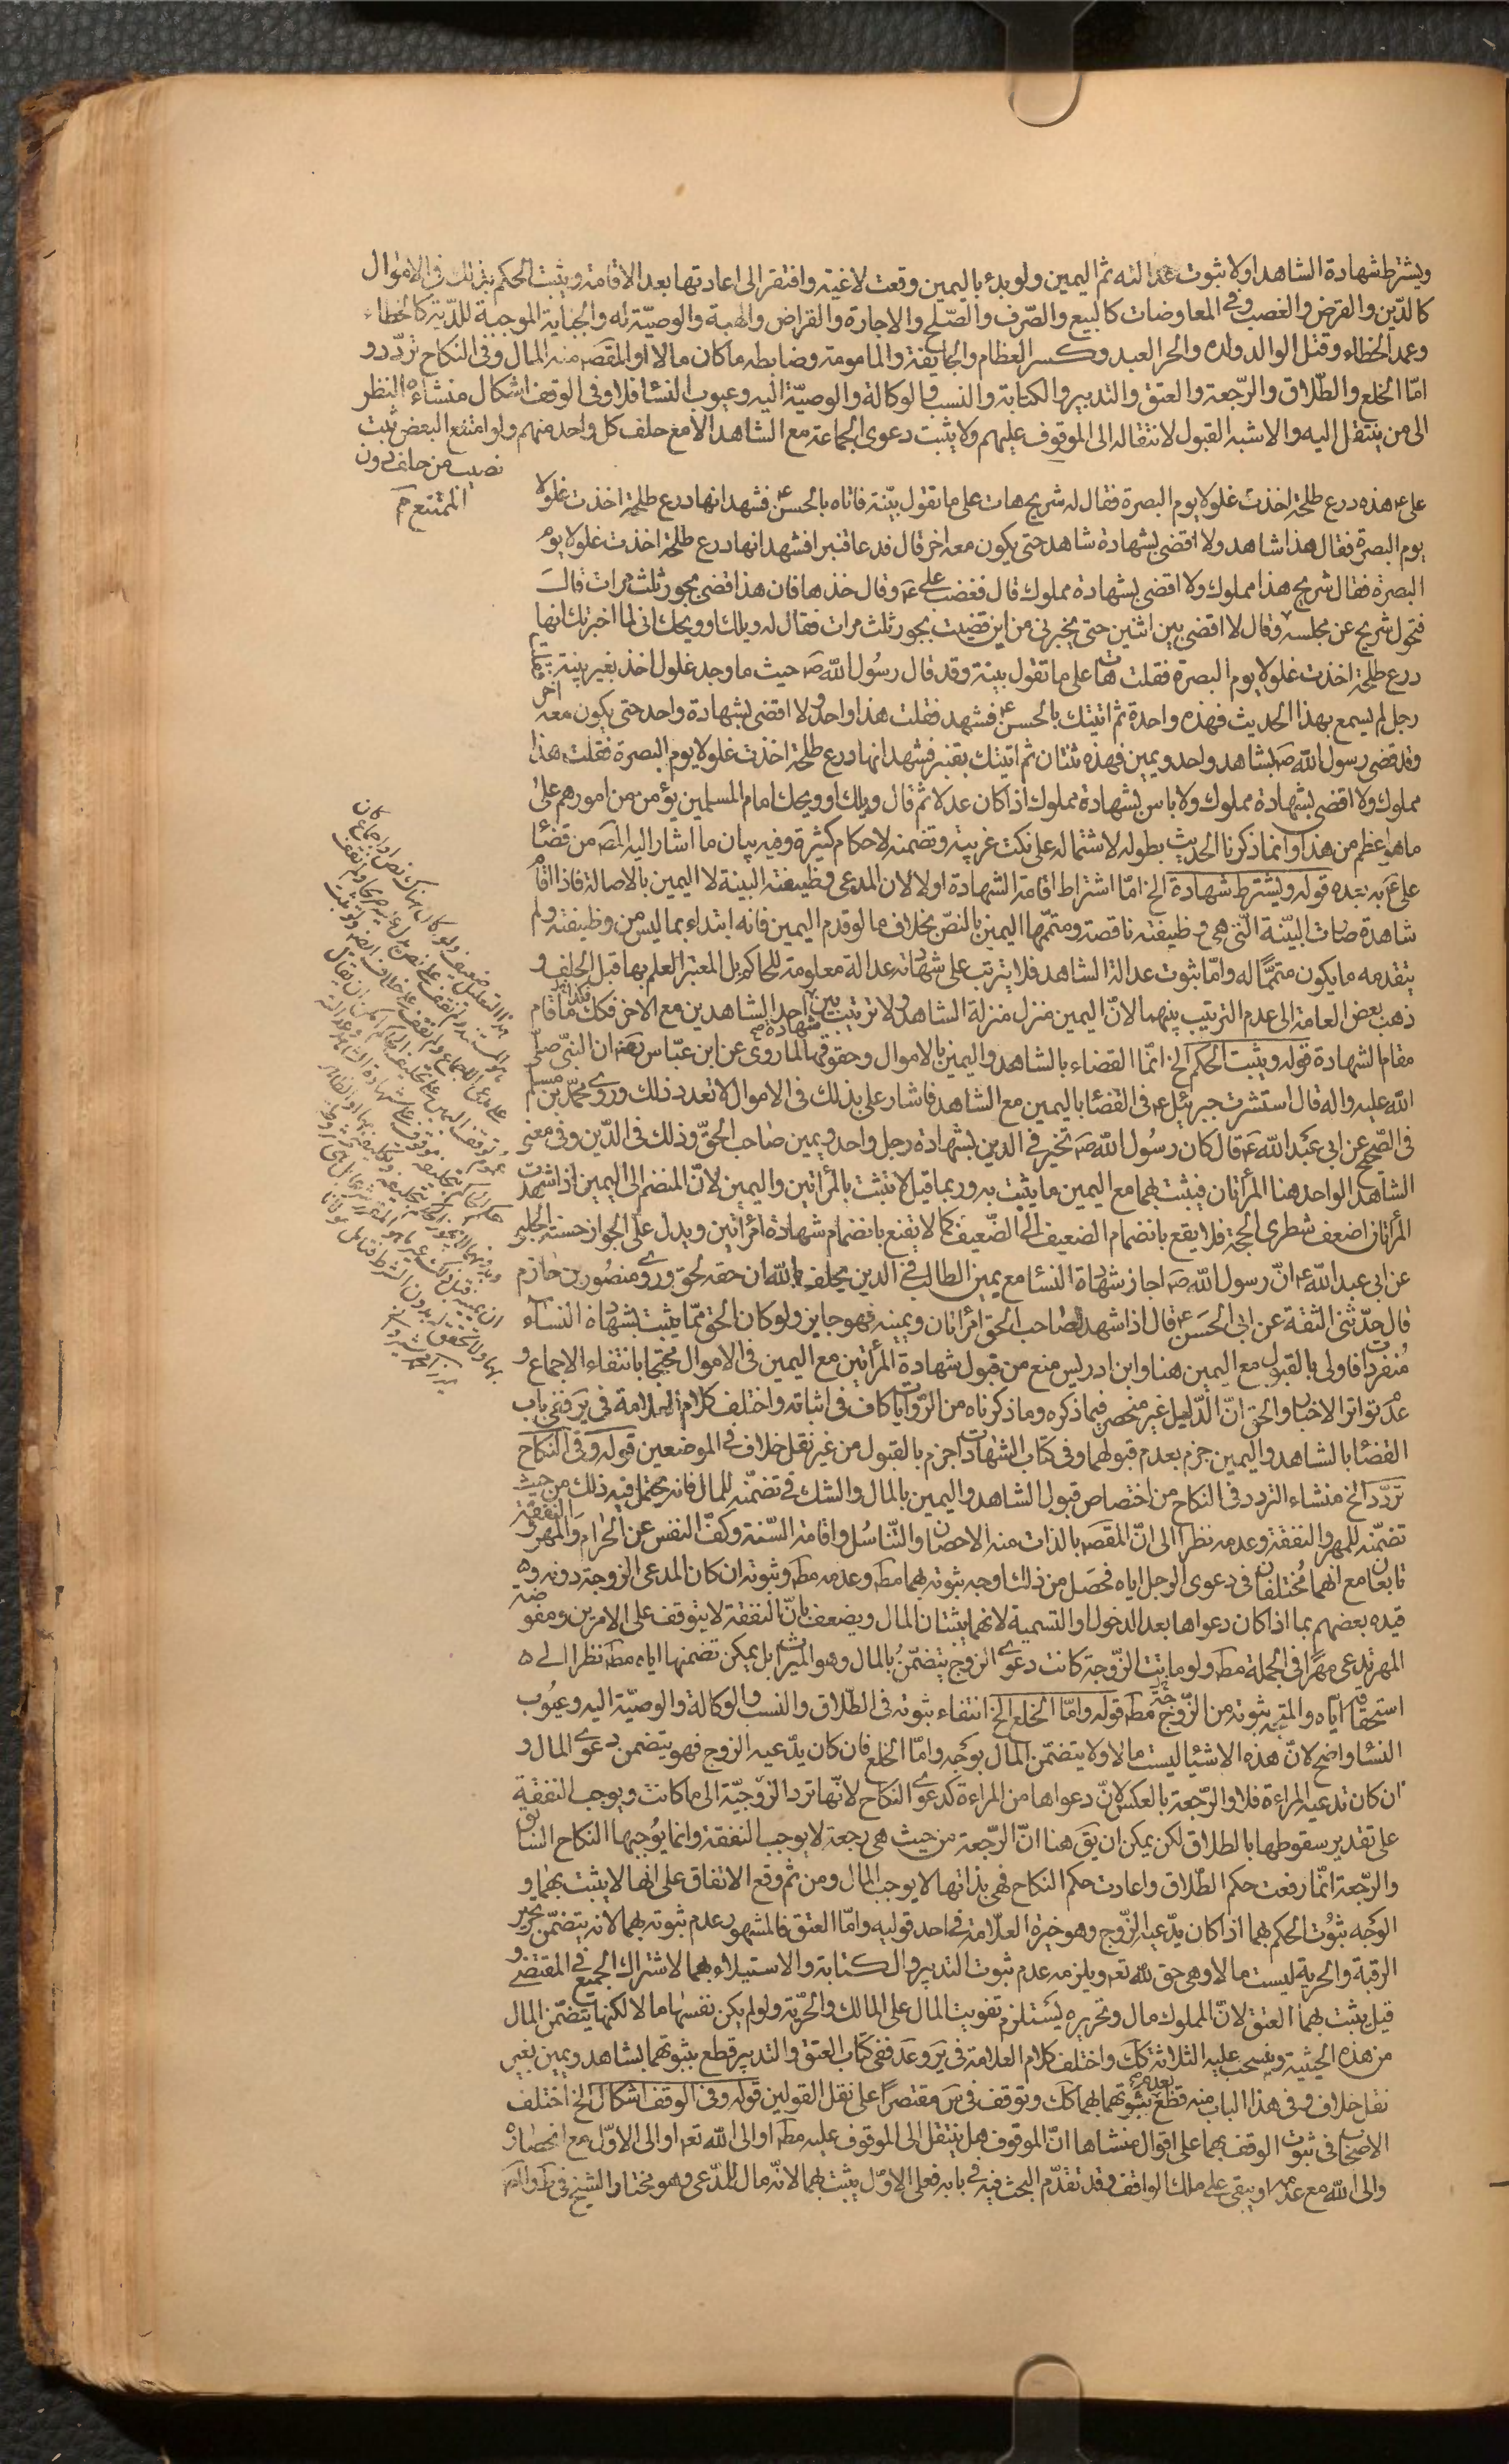 ويشترط شهادة الشاهد اولا وثبوت عدالته ثم اليمين ولو بدء باليمين وقعت لاغية وافتقر الى اعادتها بعد الاقامة ويثبت الحكم بذلك في الاموال
كالدّين والقرض والغصب وفي المعاوضات كالبيع والصّرف والصّلح والاجارة والقراض والهبة والوصيّة له والجناية الموجبة للدّية كالخطاء
وعمد الخطاء وقتل الوالد ولده والحر العبد وكسر العظام والجايفة والمامومة وضابطه ما كان مالا او المقصد منه المال وفي النكاح تردّد و
امّا الخلع والطّلاق والرّجعة والعتق والتدبير والكتابة والنسب والوكالة والوصيّة اليه وعيوب النساء فلا وفي الوقف اشكال منشاءه النظر
الى من ينتقل اليه والاشبه القبول لانتقاله الى الموقوف عليهم ولا يثبت دعوى الجماعة مع الشاهد الا مع حلف كل واحد منهم ولو امتنع البعض ثبت
نصيب من حلف دون
الممتنع
على ع هذه درع طلحة اخذت غلولا يوم البصرة فقال له شريح هات على ما تقول بيّنة فاتاه بالحسن ع فشهد انها درع طلحة اخذت غلولا
يوم البصرة فقال هذا شاهد ولا اقضى بشهادة شاهد حتى يكون معه اخر قال فدعا قنبرا فشهد انها درع طلحة اخذت غلولا يوم
البصرة فقال شريح هذا مملوك ولا اقضى بشهادة مملوك قال فغضب على ع وقال خذها فان هذا قضى بجور ثلث مرات قال
فتحول شريح عن مجلسه وقال لا اقضى بين اثنين حتى يخبرنى من اين قضيت بجور ثلث مرات فقال له ويلك او ويحك انى لما اخبرتك انها
درع طلحة اخذت غلولا يوم البصرة فقلت هات على ما تقول بينة وقد قال رسول الله ص حيث ما وجد غلول اخذ بغير بينة فقلت
رجل لم يسمع بهذا الحديث فهذه واحدة ثم اتيتك بالحسن ع فشهد فقلت هذا واحد ولا اقضى بشهادة واحد حتى يكون معه اخر
وقد قضى رسول الله ص بشاهد واحد ويمين فهذه ثنتان ثم اتيتك بقنبر فشهد انها درع طلحة اخذت غلولا يوم البصرة فقلت هذا
مملوك ولا اقضى بشهادة مملوك ولا باس بشهادة مملوك اذا كان عدلا ثم قال ويلك او ويحك امام المسلمين يؤمن من امورهم على
ما هو اعظم من هذا وانما ذكرنا الحديث بطوله لاشتماله على نكت غريبة وتضمنه لاحكام كثيرة وفيه بيان ما اشار اليه المصَ من قضاء
على ع به بعده قوله ويشترط شهادة الخ امّا اشتراط اقامة الشهادة اولا لان المدعى وظيفته البينة لا اليمين بالاصالة فاذا اقام
شاهده صارت البيّنة الّتى هى وظيفته ناقصة ومتمّمها اليمين بالنصّ بخلاف ما لو قدم اليمين فانه ابتداء بما ليس من وظيفته ولم
يتقدمه ما يكون متمّمًا له وامّا ثبوت عدالة الشاهد فلا يترتب على شهادته عدالة معلومة للحاكم بل المعتبر العلم بها قبل الحلف و
ذهب بعض العامة الى عدم الترتيب بينهما لانّ اليمين منزل منزلة الشاهد ولا ترتيب بين احد الشاهدين مع الاخر فكك ما قام
مقام الشهادة قوله ويثبت الحكم الخ انّما القضاء بالشاهد واليمين بالاموال وحقوقها لما روى عن ابن عبّاس رضه ان النبىّ صلى
الله عليه واله قال استشرت جبرئيل ع في القضا باليمين مع الشاهد فاشار على بذلك في الاموال لا تعدد ذلك وروى محمّد بن مسلم
في الصّحيح عن ابى عبد الله ع قال كان رسول الله ص يجيز في الدين بشهادة رجل واحد ويمين صاحب الحقّ وذلك في الدّين وفي معنى
الشاهد الواحد هنا المرأتان فيثبت بهما مع اليمين ما يثبت به وربما قيل لا تثبت بالمرأتين واليمين لانّ المنضم الى اليمين اذا شهدت
المرأتان اضعف شطرى الحجة فلا يقع بانضمام الضعيف الى الضّعيف كما لا يقنع بانضمام شهادة امرأتين ويدل على الجواز حسنة الحلبى
عن ابى عبد الله ع انّ رسول الله ص اجاز شهادة النساء مع يمين الطالب في الدين يحلف بالله ان حقه لحق وروى منصور بن حازم
قال حدّثنى الثقة عن ابى الحسن ع قال اذا شهد لصاحب الحق امرأتان ويمينه فهو جايز ولو كان الحق ممّا يثبت بشهادة النساء
منفردات فاولى بالقبول مع اليمين هنا وابن ادريس منع من قبول شهادة المرأتين مع اليمين في الاموال محتجا بانتفاء الاجماع و
عدم تواتر الاخبار والحق انّ الدّليل غير منحصر فيما ذكره وما ذكرناه من الرّوايات كاف في اثباته واختلف كلام العلامة في ير ففى باب
القضاء بالشاهد واليمين جزم بعدم قبولهما وفى كتاب الشهادات جزم بالقبول من غير نقل خلاف في الموضعين قوله وفى النكاح
تردّد الخ منشاء التردد في النكاح من اختصاص قبول الشاهد واليمين بالمال والشك في تضمنه للمال فانه يحتمل فيه ذلك من حيث
تضمّنه للمهر والنفقة وعدمه نظرا الى انّ المقصد بالذات منه الاحصان والتّناسل واقامة السّنة وكفّ النفس عن الحرام والمهر والنفقة
تابعان مع انهما مختلفان في دعوى الرجل اياه فحصل من ذلك اوجه ثبوته بهما مط وعدمه مط وثبوته ان كان المدعى الزوجة دونه و
قيده بعضهم بما اذا كان دعواها بعد الدخول او التسمية لانهما يثبتان المال ويضعف بانّ النفقة لا يتوقف على الامرين ومفوضة
المهر تدعى مهرًا في الجملة مط ولو ماتت الزّوجة كانت دعوى الزوج يتضمّن بالمال وهو الميراث بل يمكن تضمنها اياه مط نظرا الى
استحقاقها اياه والمتجه ثبوته من الزّوجة مط قوله وامّا الخلع الخ انتفاء ثبوته في الطّلاق والنسب والوكالة والوصيّة اليه وعيوب
النساء واضح لانّ هذه الاشياء ليست مالا ولا يتضمّن المال بوجه وامّا الخلع فان كان يدّعيه الزوج فهو يتضمن دعوى المال و
ان كان تدعيه المراءة فلا والرّجعة بالعكس لانّ دعواها من المراءة كدعوى النكاح لانّها ترد الزوجيّة الى ما كانت ويوجب النفقة
على تقدير سقوطها بالطلاق لكن يمكن ان يقَ هنا انّ الرّجعة من حيث هى رجعة لا يوجب النفقة وانما يوجبها النكاح السابق
والرّجعة انّما رفعت حكم الطّلاق واعادت حكم النكاح فهى بذاتها لا يوجب المال ومن ثم وقع الاتفاق على انها لا يثبت بهما و
الوجه ثبوت الحكم بهما اذا كان يدّعيه الزّوج وهو خيرة العلّامة في احد قوليه وامّا العتق فالمشهور عدم ثبوته بهما لانه يتضمّن تحرير
الرقبة والحرية ليست مالا وهى حق لله تع ويلزمه عدم ثبوت التدبير والكتابة والاستيلاء بهما لاشتراك الجميع في المقتضى و
قيل يثبت بهما العتق لانّ المملوك مال وتحريره يستلزم تفويت المال على المالك والحرّية ولو لم يكن نفسها مالا لكنها يتضمّن المال
من هذه الحيثية وينسحب عليه الثلاثة كك واختلف كلام العلامة في ير وعد ففى كتاب العتق والتدبير قطع بثبوتهما بشاهد ويمين بغير
نقل خلاف وفى هذا الباب منه قطع بعدم ثبوتهما بهما كك وتوقف في س مقتصرًا على نقل القولين قوله وفى الوقف اشكال الخ اختلف
الاصحاب في ثبوت الوقف بهما على اقوال منشاها انّ الموقوف هل ينتقل الى الموقوف عليه مط او الى الله تع او الى الاوّل مع انحصاره
والى الله مع عدمه او يبقى على ملك الواقف وقد تقدّم البحث فيه في بابه فعلى الاوّل يثبت بهما لانّه مال للمدّعى وهو مختار الشيخ في ط